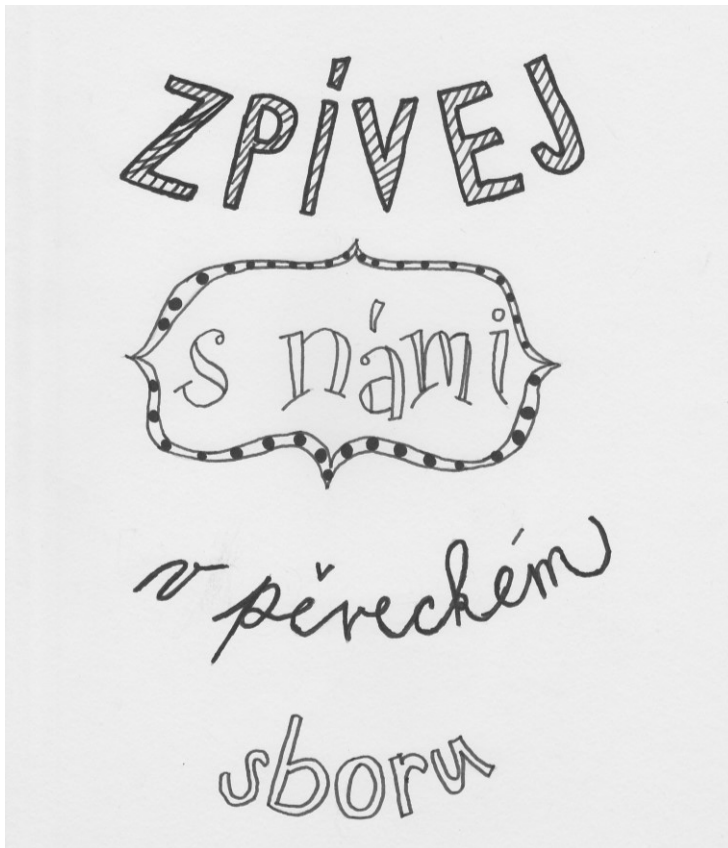 ZPÍVEJ
s námi
v pěveckém
sboru